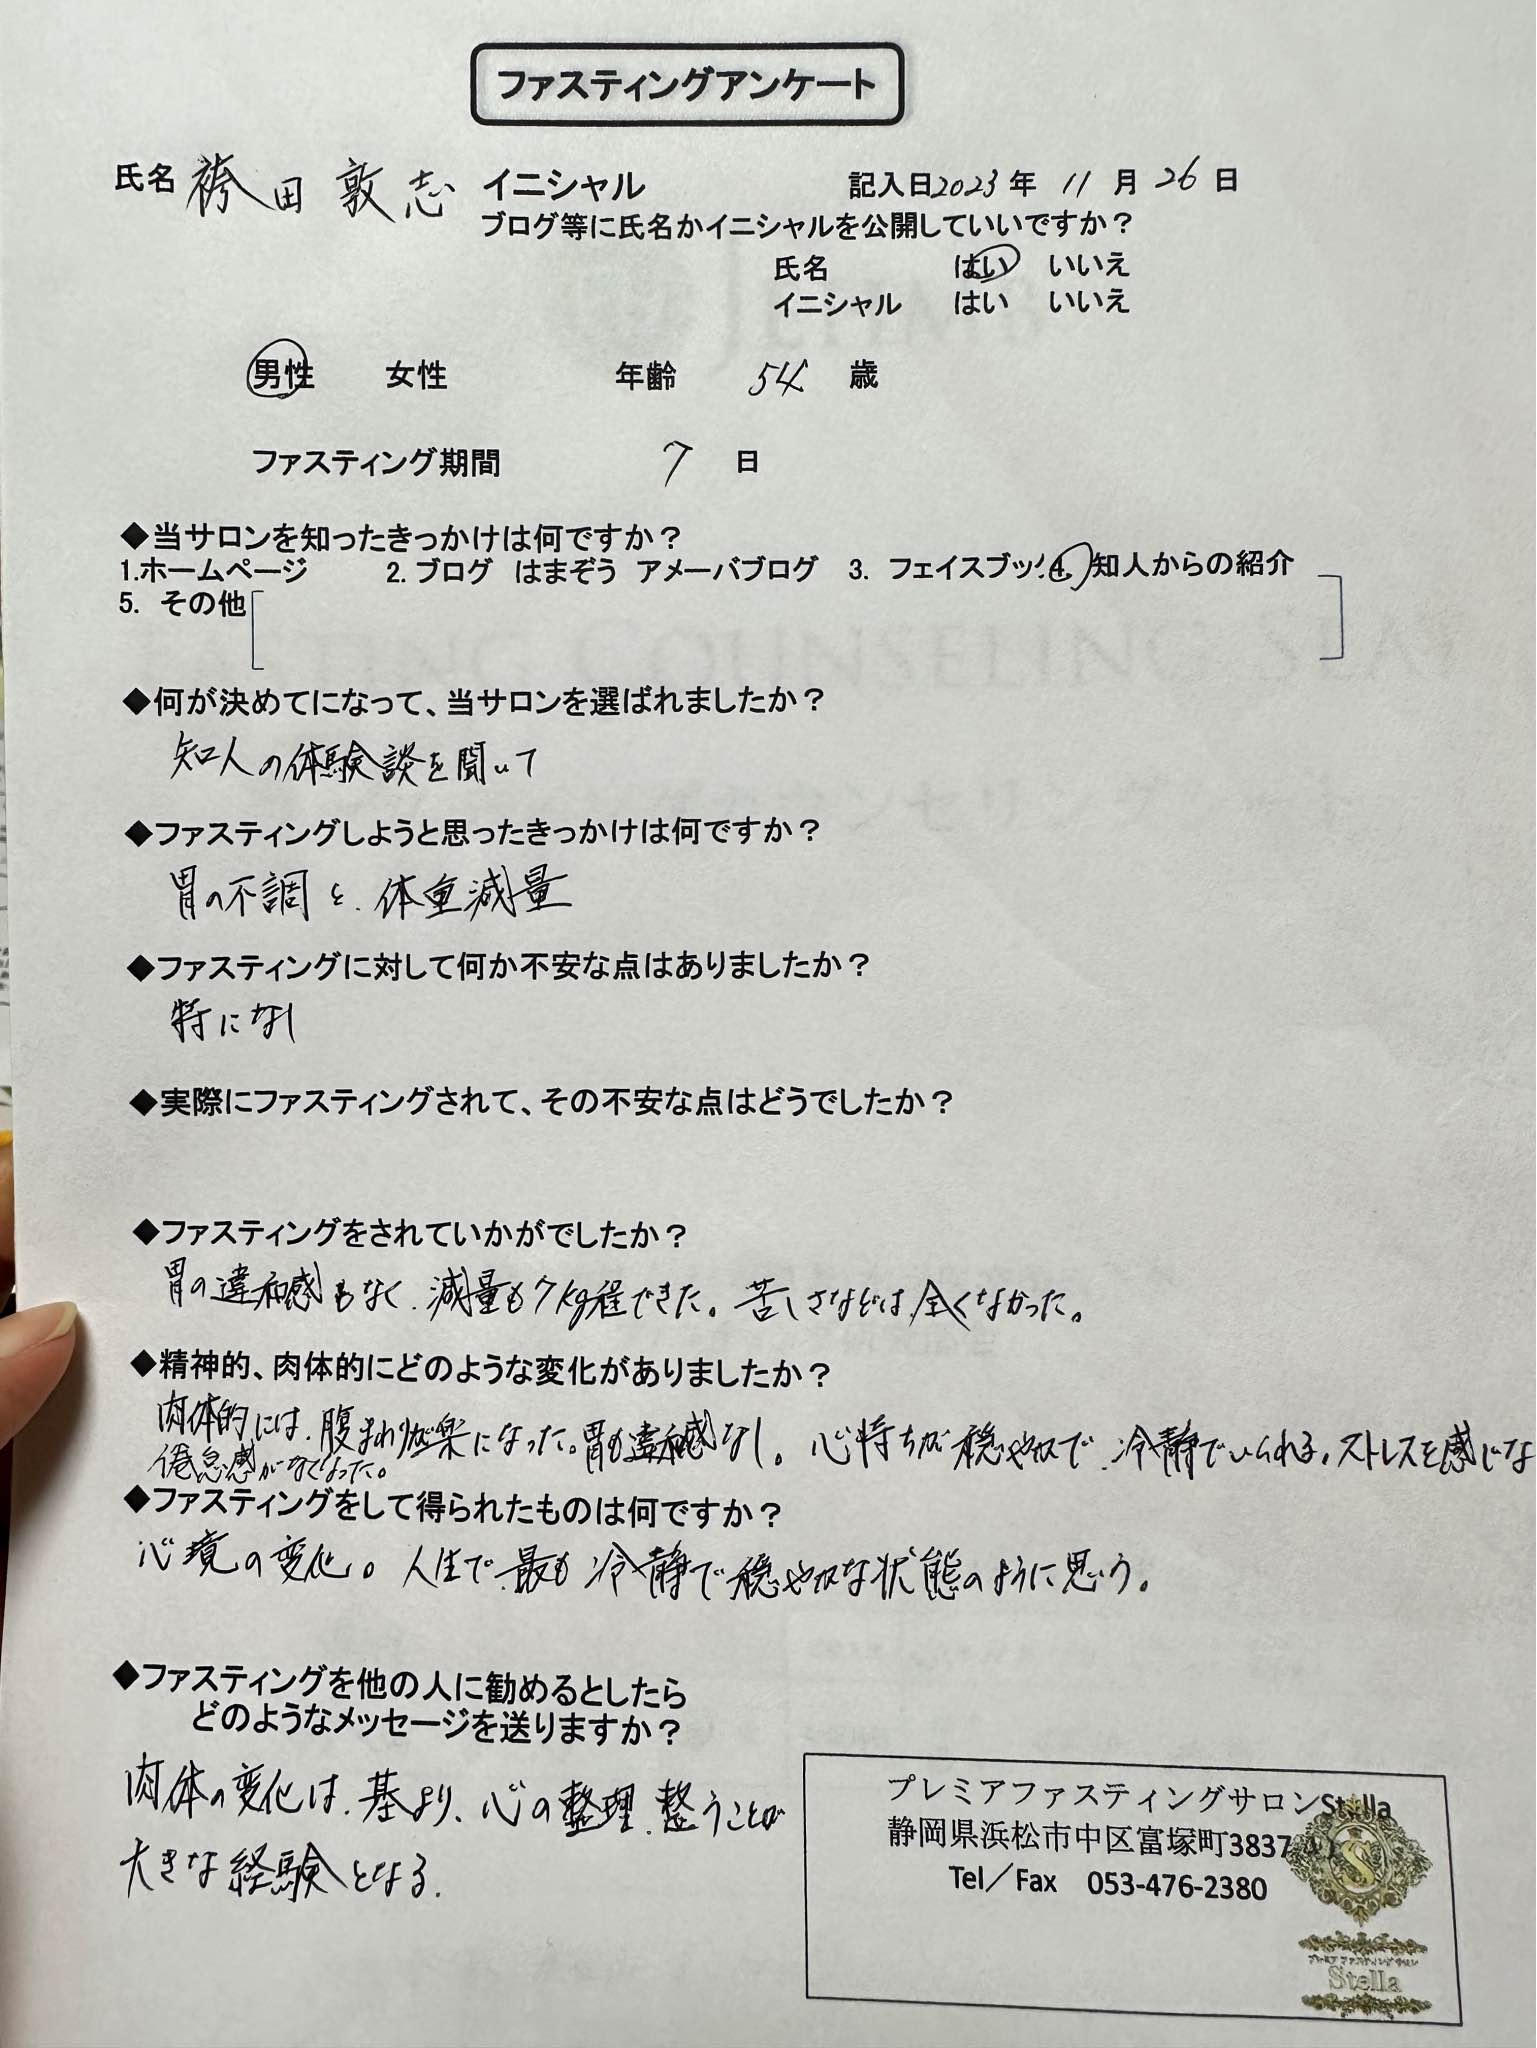 ファスティングアンケート
氏名 袴田敦志 イニシャル 記入日2023年 11月 26日
ブログ等に氏名かイニシャルを公開していいですか？
氏名 はい いいえ
イニシャル はい いいえ
男性 女性 年齢 54 歳
ファスティング期間 7 日
◆当サロンを知ったきっかけは何ですか？
1.ホームページ 2.ブログ はまぞう アメーバブログ 3. フェイスブック 4. 知人からの紹介
5. その他
◆何が決めてになって、当サロンを選ばれましたか？
知人の体験談を聞いて
◆ファスティングしようと思ったきっかけは何ですか？
胃の不調と、体重減量
◆ファスティングに対して何か不安な点はありましたか？
特になし
◆実際にファスティングされて、その不安な点はどうでしたか？
◆ファスティングをされていかがでしたか？
胃の違和感もなく、減量も7kg程できた。苦しさなどは、全くなかった。
◆精神的、肉体的にどのような変化がありましたか？
肉体的には、腹まわりが楽になった。胃も違和感なし。心持ちが穏やかで、冷静でいられる。ストレスを感じな
倦怠感がなくなった。
◆ファスティングをして得られたものは何ですか？
心境の変化。人生で、最も冷静で穏やかな状態のように思う。
◆ファスティングを他の人に勧めるとしたら
どのようなメッセージを送りますか？
肉体の変化は、基より、心の整理、整うことが
大きな経験となる。
プレミアファスティングサロンStella
静岡県浜松市中区富塚町3837
Tel／Fax 053-476-2380
S
プレミアファスティングサロン
Stella